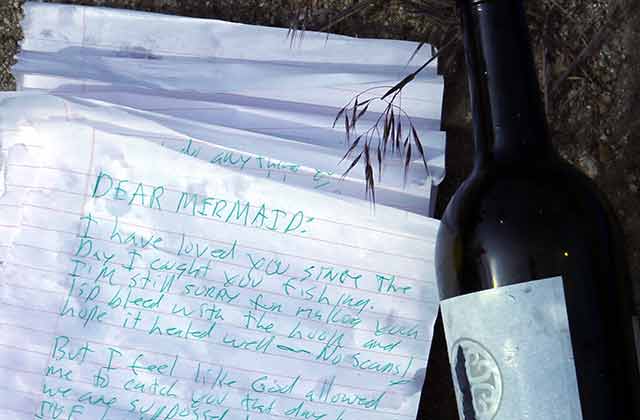 do anything
DEAR MERMAID:
I have loved you since the
Day I caught you fishing.
I'm still sorry fun making your
lip bleed with the hook and
hope it healed well — No scans!
But I feel like God allowed
me to catch you that day b
we are supposed